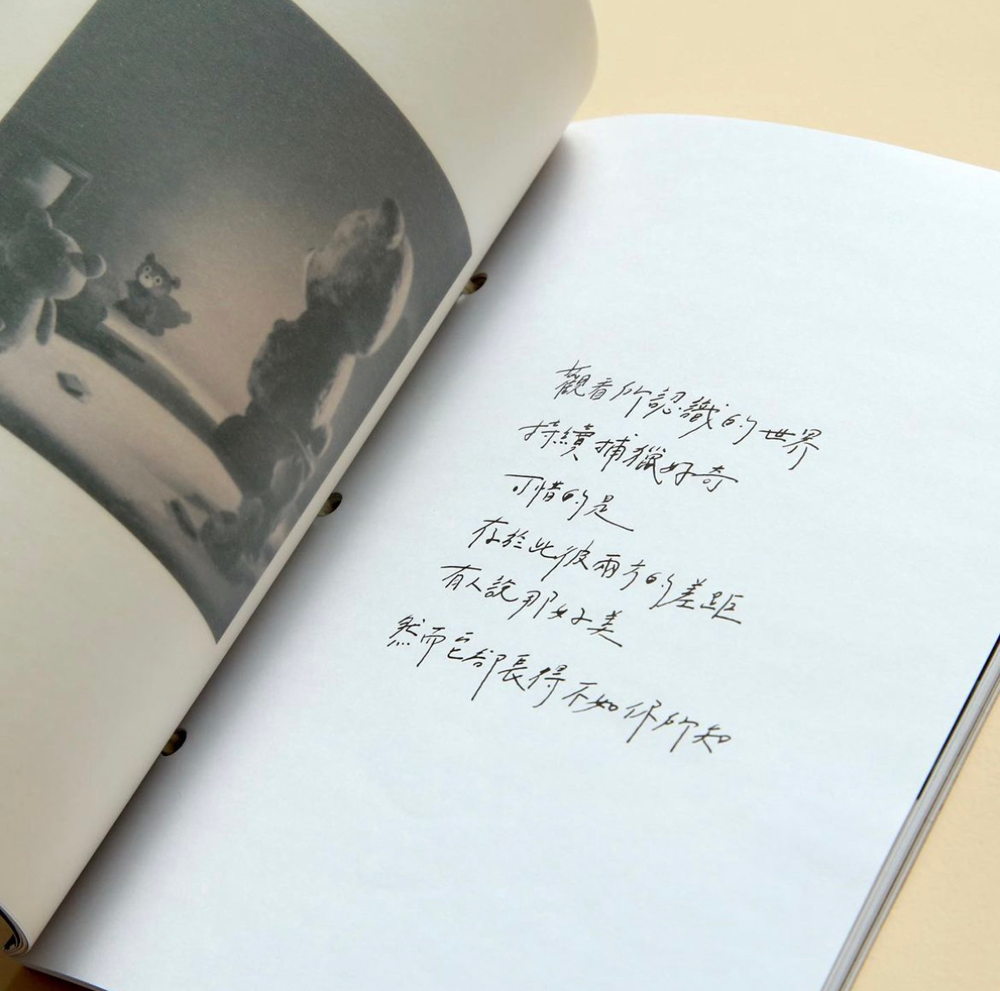 觀看所認識的世界
持續捕獵好奇
可惜的是
存於此彼兩方的差距
有人說那好美
然而它都長得不如你所知